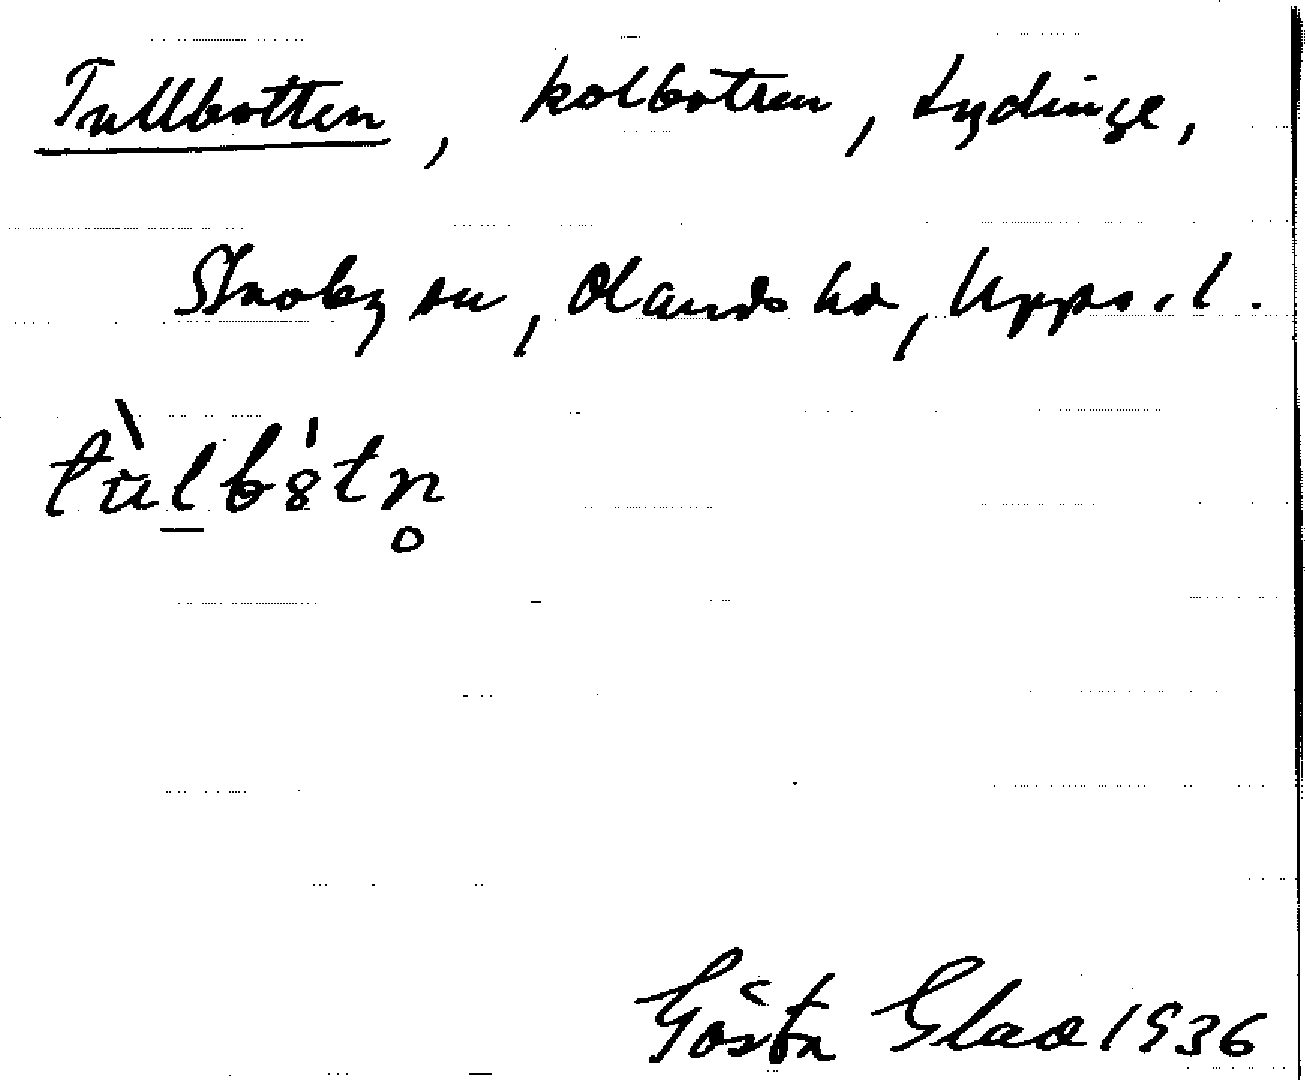 Tullbotten, kolbotten, Lydinge,
Stavby sn, Olands hd, Upps. l.
tùlbòtn̥
Gösta Glad 1936